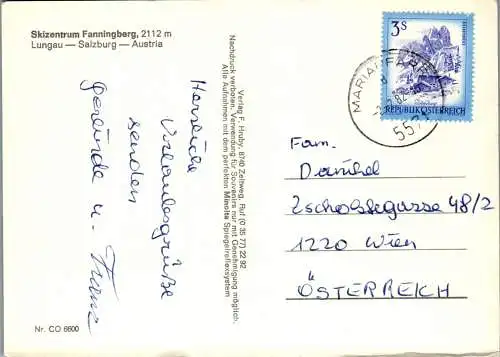 Skizentrum Fanningberg, 2112 m
Lungau — Salzburg — Austria
Herzliche
Urlaubsgrüße
senden
Gerlinde u. Franz
Verlag F. Hruby, 8740 Zeltweg, Ruf (0 35 77) 22 92
Nachdruck verboten, Verwendung für Souvenirs nur mit Genehmigung möglich.
Alle Aufnahmen mit dem perfekten Minolta Spiegelreflexsystem
Nr. CO 6600
3 S
REPUBLIK ÖSTERREICH
MARIAPFARR
557
Fam.
Danihel
Zschokkegasse 48/2
1220 Wien
ÖSTERREICH